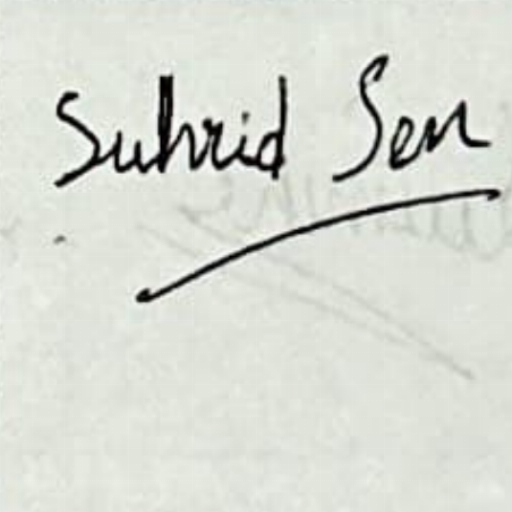 Suhrid Sen